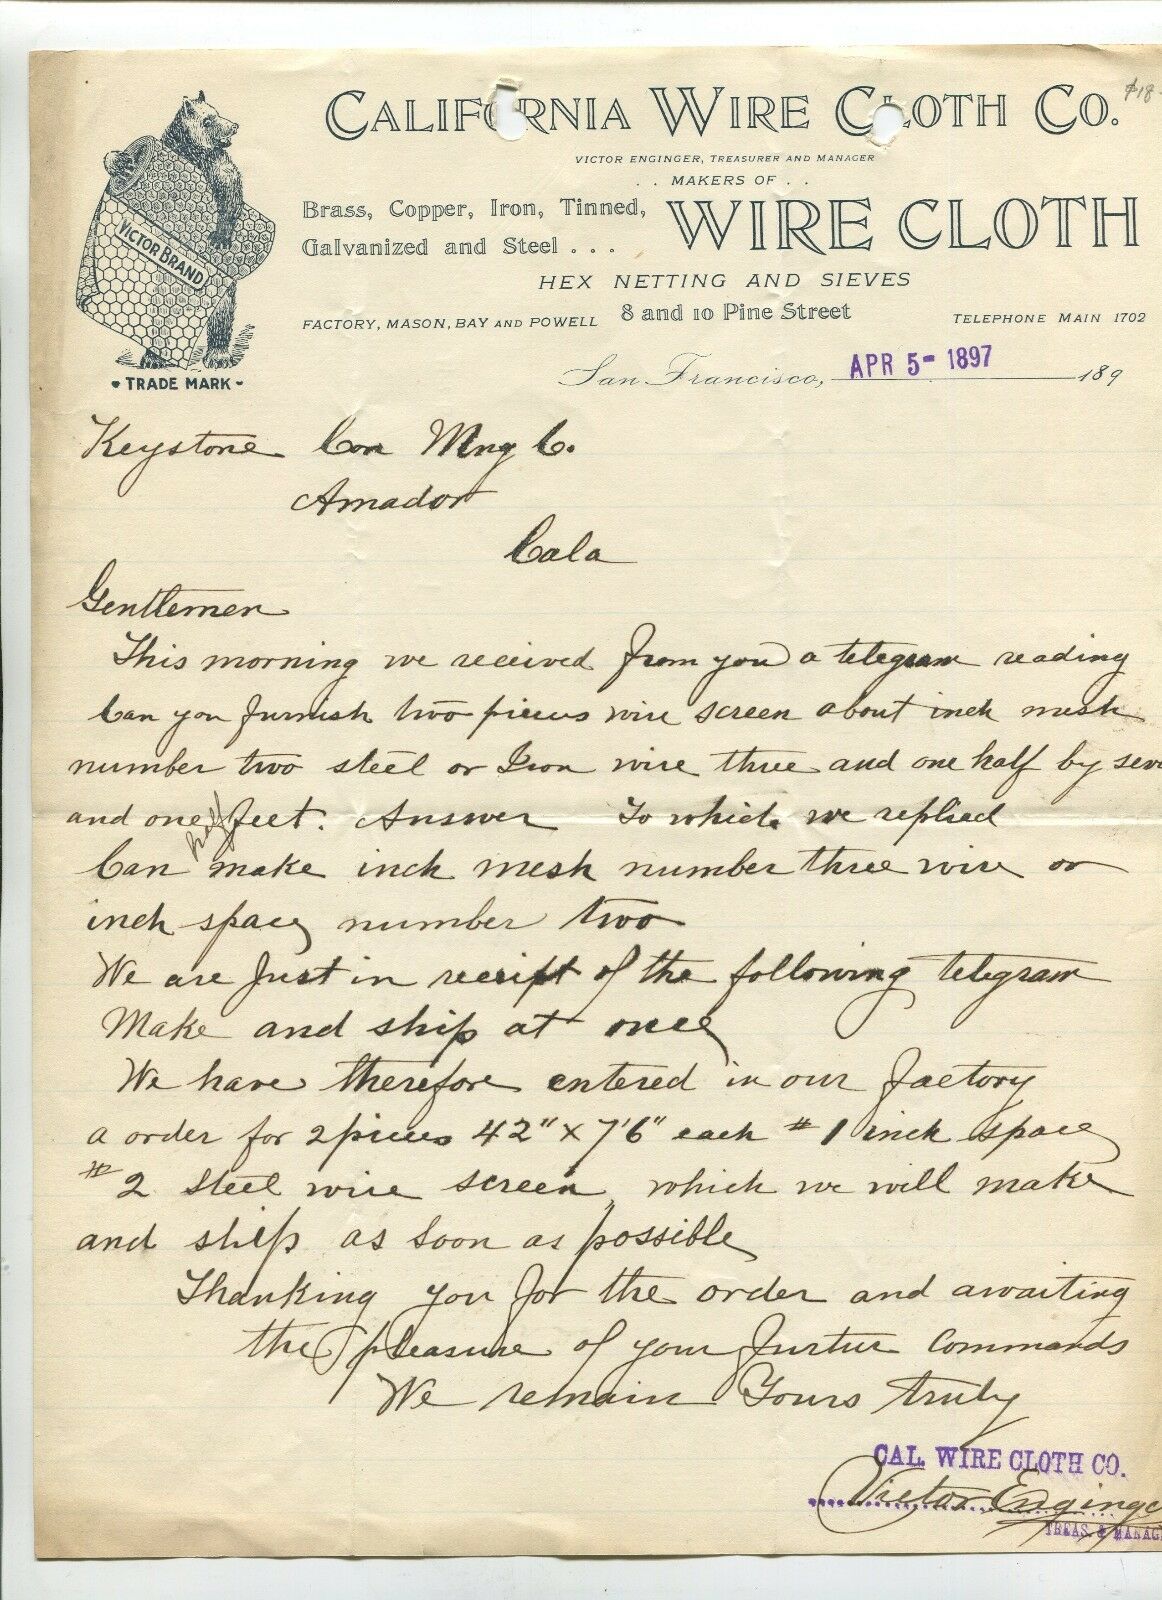 $18-
CALIFORNIA WIRE CLOTH CO.
VICTOR ENGINGER, TREASURER AND MANAGER
. . MAKERS OF . .
Brass, Copper, Iron, Tinned,
Galvanized and Steel . . .
WIRE CLOTH
HEX NETTING AND SIEVES
FACTORY, MASON, BAY AND POWELL
8 and 10 Pine Street
TELEPHONE MAIN 1702
VICTOR BRAND
TRADE MARK
San Francisco, APR 5- 1897 189
Keystone Con Mng C.
Amador
Cala
Gentlemen
This morning we received from you a telegram reading
Can you furnish two pieces wire screen about inch mesh
number two steel or Iron wire three and one half by seve
and one half feet. Answer To which we replied
Can make inch mesh number three wire or
inch space number two
We are just in receipt of the following telegram
Make and ship at once
We have therefore entered in our factory
a order for 2 pieces 42" x 7'6" each # 1 inch space
# 2 steel wire screen, which we will make
and ship as soon as possible
Thanking you for the order and awaiting
the pleasure of your furtur commands
We remain Yours truly
CAL. WIRE CLOTH CO.
Victor Enginger
TREAS. & MANAG